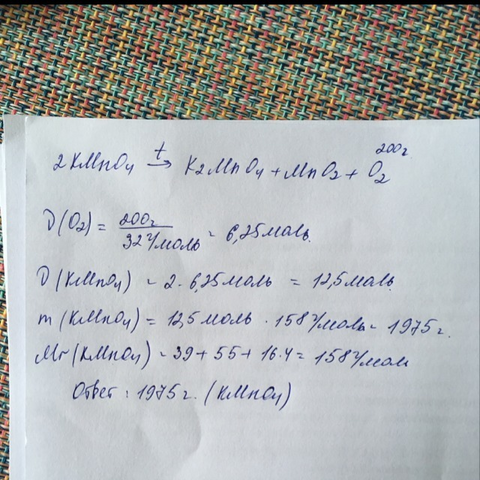 200г
2KMnO4 t→ K2MnO4 + MnO2 + O2
ν(O2) = 200г / 32 г/моль = 6,25 моль.
ν(KMnO4) = 2 · 6,25 моль = 12,5 моль
m(KMnO4) = 12,5 моль · 158 г/моль = 1975 г.
Mr(KMnO4) = 39 + 55 + 16·4 = 158 г/моль
Ответ: 1975 г. (KMnO4)